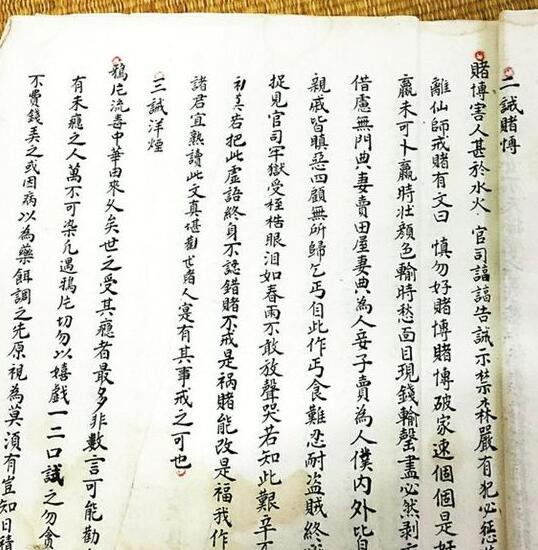 二誡賭博
賭博害人甚於水火官司諄諄告誡示禁森嚴有犯必懲
離仙師戒賭有文曰慎勿好賭博賭博破家速個個是好
贏未可卜贏時壯顏色輸時愁面目現錢輸罄盡必然剥
借慮無門典妻賣田屋妻典為人妾子賣為人僕內外皆
親戚皆嗔惡四顧無所歸乞丐自此作丐食難忍耐盜賊終
捉見官司牢獄受桎梏眼泪如春雨不敢放聲哭若知此艱辛不
若把此虛語終身不認錯賭不戒是禍賭能改是福我作
諸君宜熟讀此文真堪勸世諸人寔有其事戒之可也
三誡洋煙
鴉片流毒中華由來久矣世之受其癮者最多非數言可能勸
有未癮之人萬不可染凡遇鴉片切勿以嬉戲一二口試之勿貪
不費錢美之或因病以為藥餌調之先原視為莫須有豈知日積